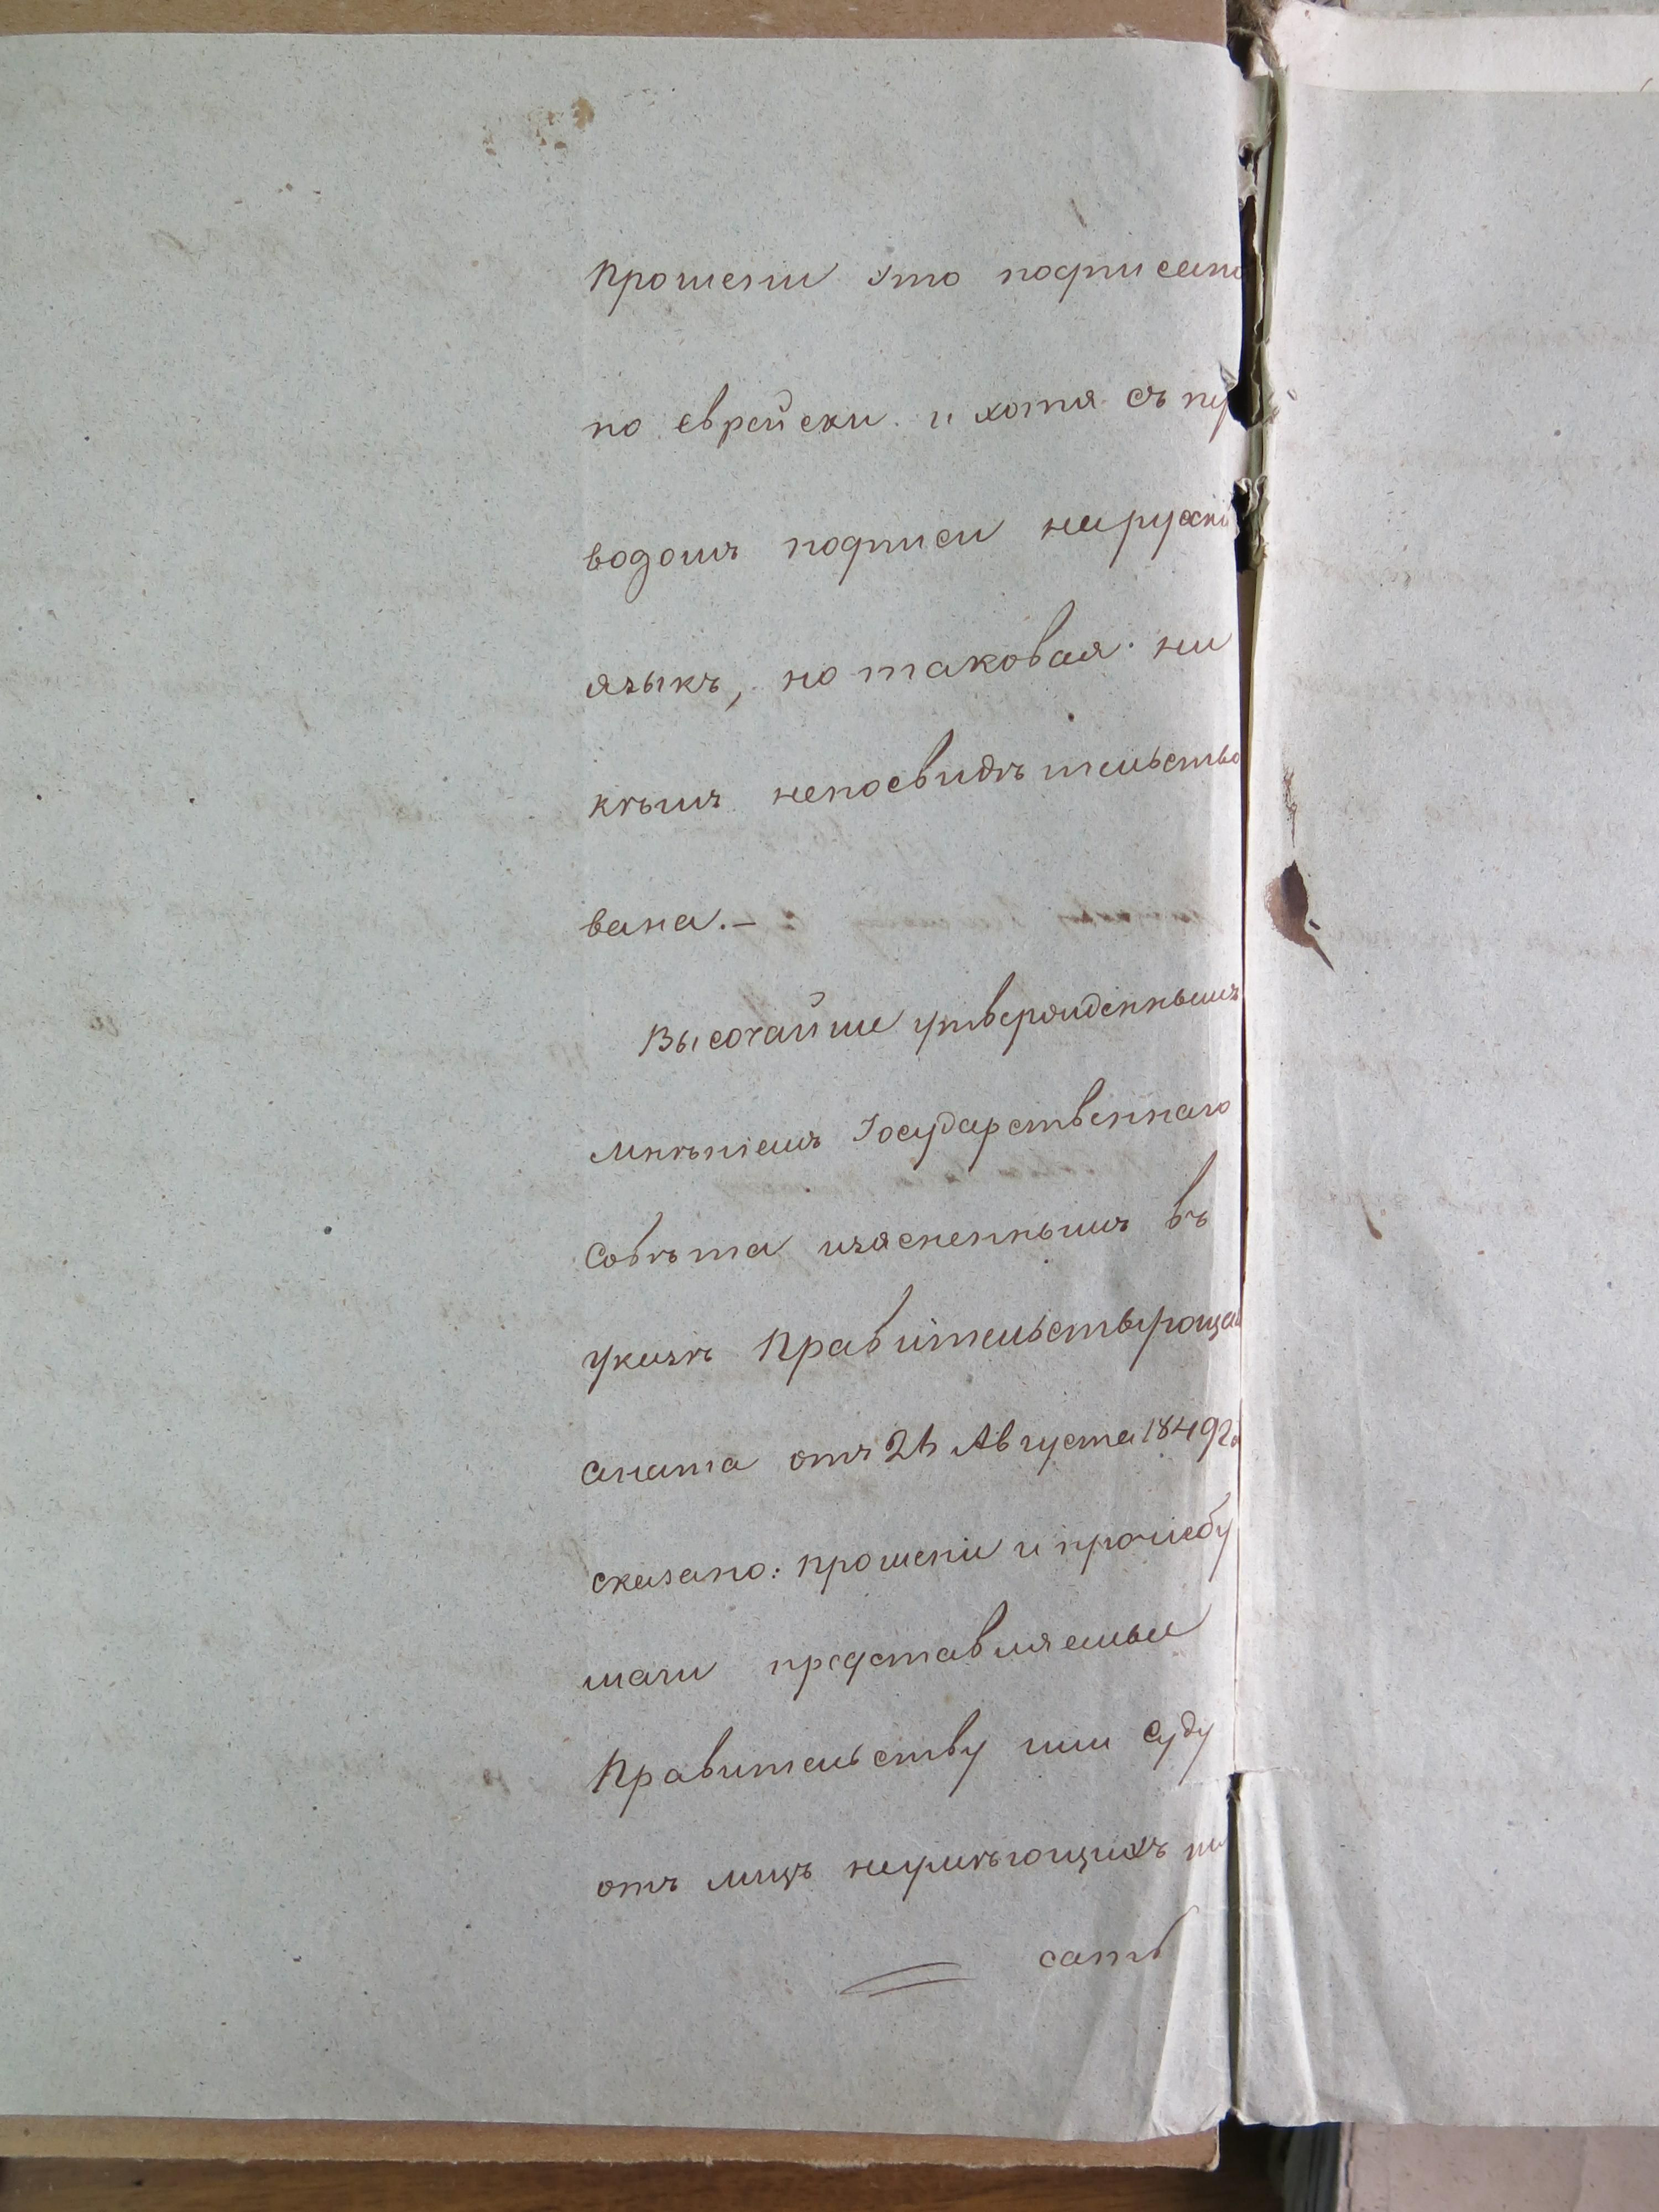 Прошеніе это подписано
по еврейски. и хотя съ пер
водомъ подписи на рускій
языкъ, но таковая ни
кѣмъ непосвидѣтельство
вана.—
Высочайше утвержденнымъ
мнѣніемъ Государственнаго
Совѣта изясненнымъ въ
указѣ Правительствующа
Сената отъ 2 Августа 1849 го
сказано: прошеніе и прочіебу
маги представляемые
Правительству или Суду
отъ лицъ неумѣющихъ пи
сать